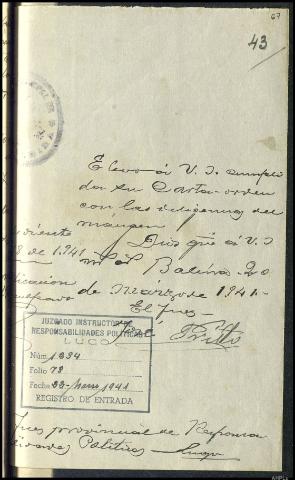 67
43
Elevo á V. I. cumpli
da su Carta-orden
con las diligencias del
márgen.
Dios gue á V. I.
m. a. Baleira 20
de Marzo de 1941.-
El Juez
8 de 1.941
JUZGADO INSTRUCTOR
RESPONSABILIDADES POLÍTICAS
LUGO
Núm. 1334
Folio 78
Fecha 23-Marzo 1941
REGISTRO DE ENTRADA
Juez provincial de Responsa
bilidades Políticas Lugo
AHPLu